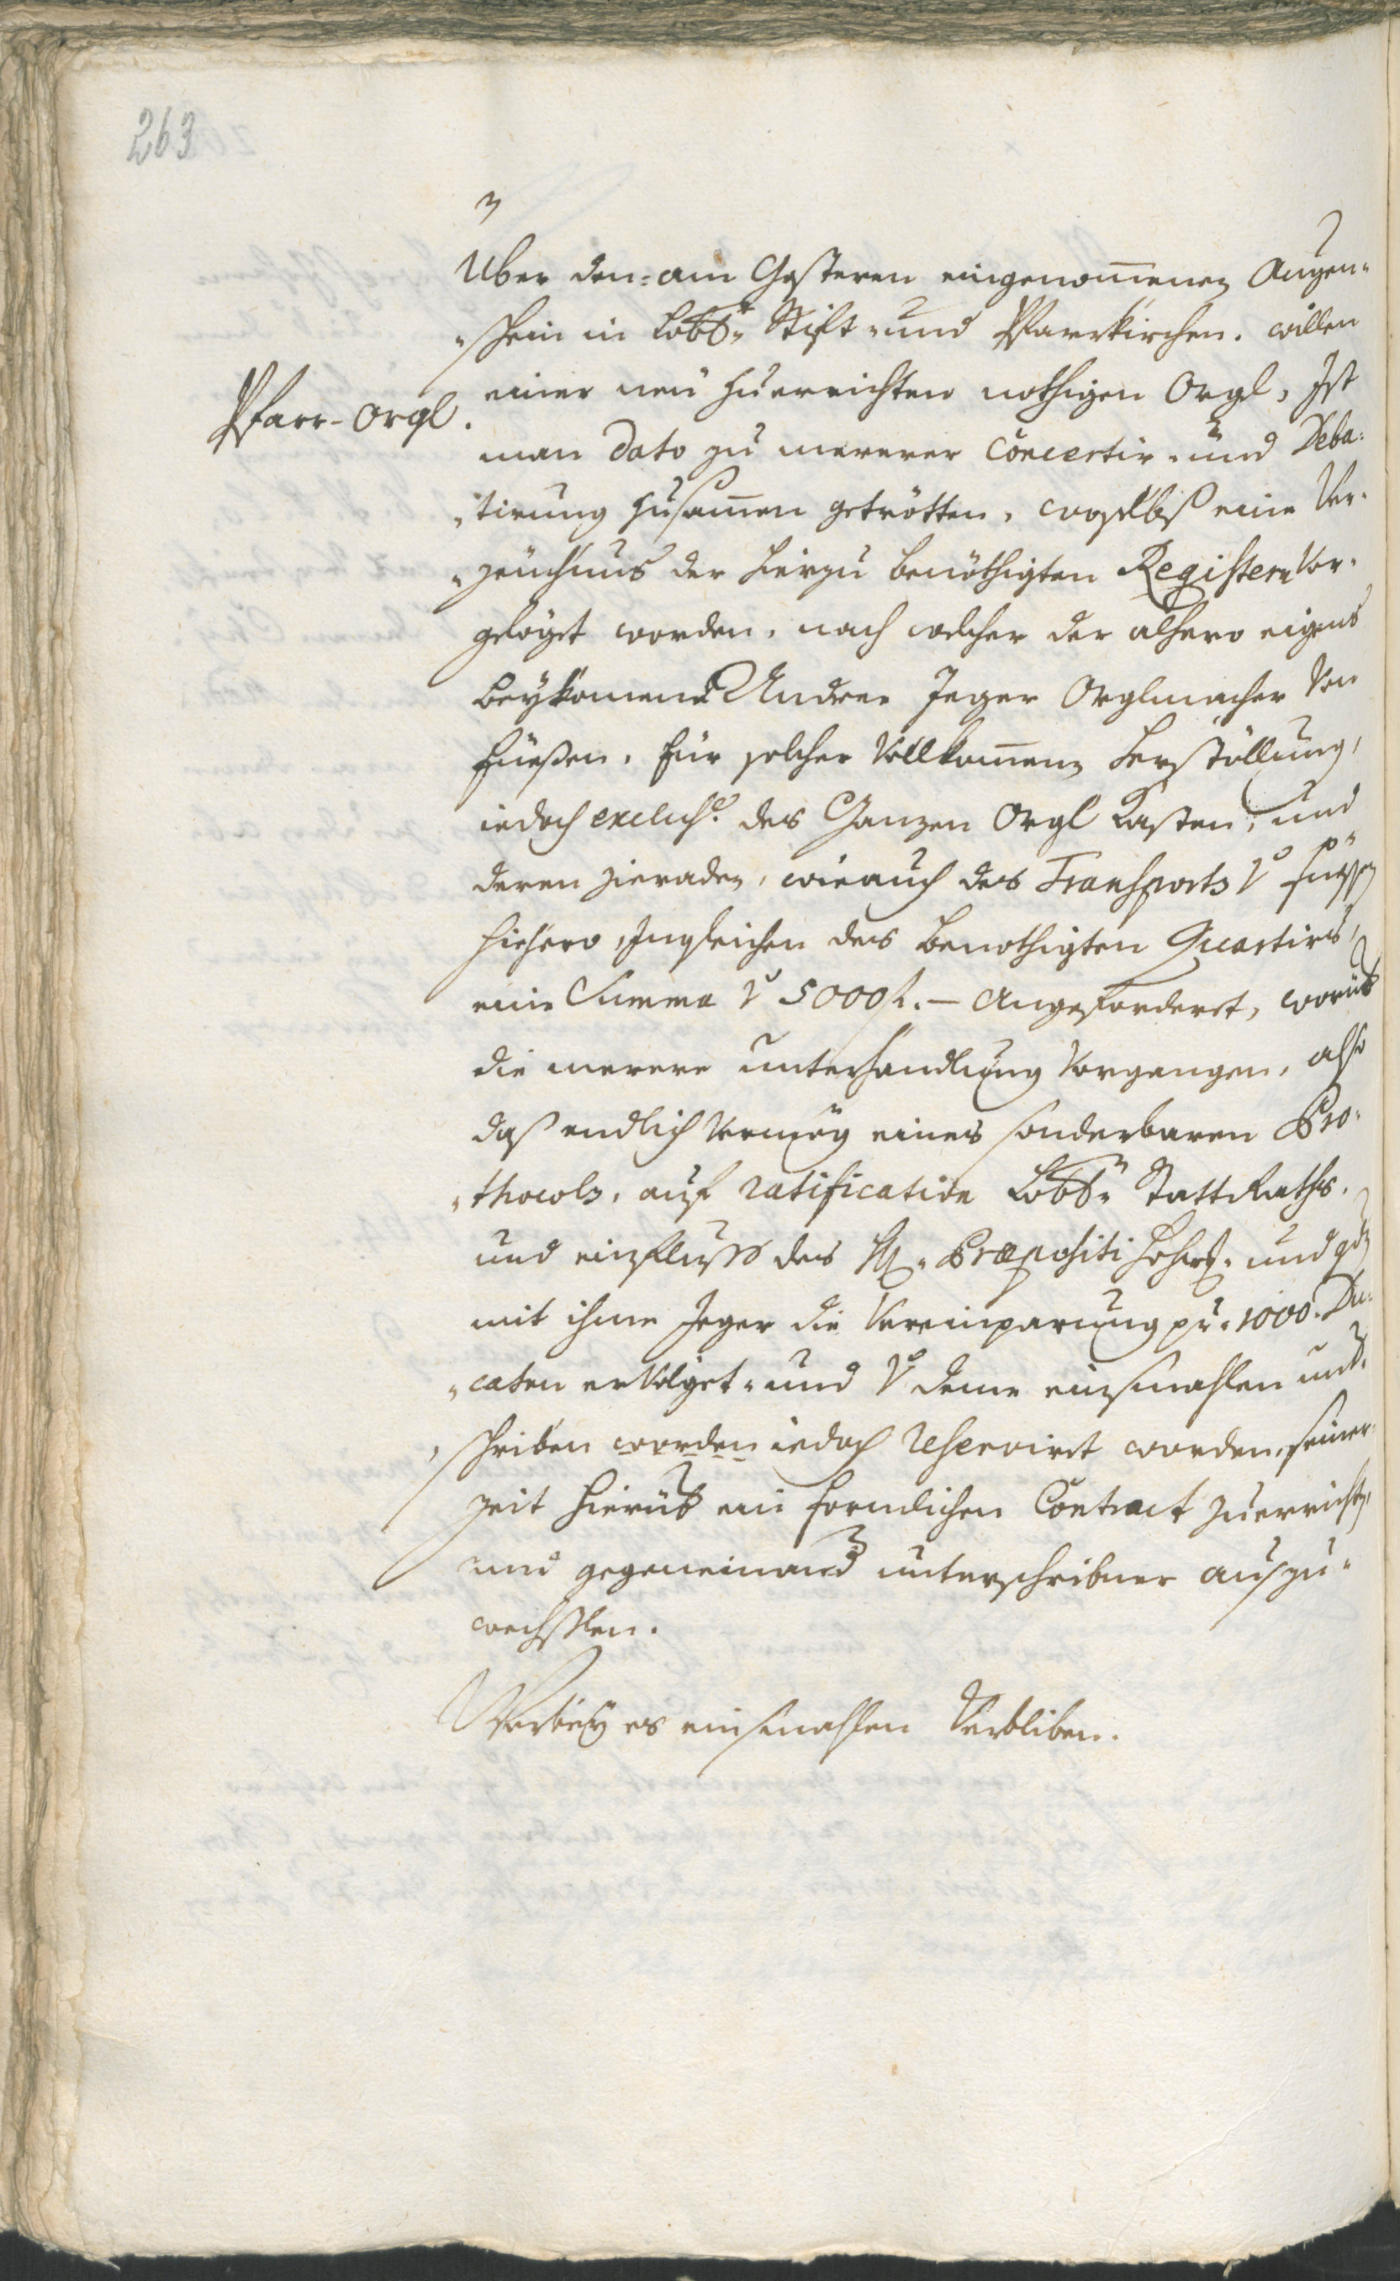 263
Über den- am Gesteren eingenommenen Augen-
schein in Lobl. Stüft- und Pfarrkirchen. willen
Pfarr-Orgl.
einer neu zuerrichten nothigen Orgl, Ist
man dato zu merer Concertir- und Deba-
tierung zusammen getrötten, woselbst eine Ver-
zeuchnus der hierzu benöthigten Registern Vor-
gelöget worden, nach welcher der alhero eigens
beykomend Andree Jeger Orglmacher Von
Füeßen, für solcher Vollkommene Herstöllung,
iedoch exclus. des Ganzen Orgl Kasten, und
deren Zieraden, wie auch des Transports V. Fueßen
hiehero, Ingleichen des benothigten Quartirs,
eine Summa V. 5000 f. – Angeforderet, worüber
die merere unterhandlung Vorgangen, also
daß endlich Vermög eines sonderbaren Pro-
thocols, auf ratification Lobl. Statt Raths,
und einfluss des H. Præpositi Hochw. und gdn
mit ihme Jeger die Vereinparung pr. 1000. Du-
caten erVolget- und V. deme einsmahlen under-
schriben worden iedoch reservirt worden, seiner
zeit hierüber ein formlichen Contract zuerrichten,
und gegeneinander unterschribner auszu-
wechslen.
Warbey es einsmahlen Verbliben.